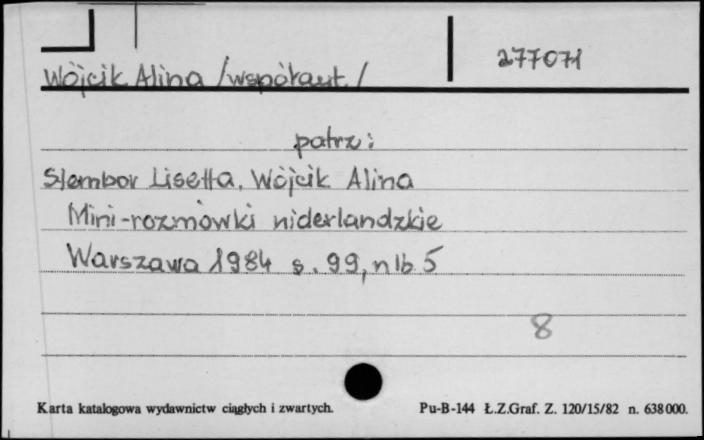 277071
Wójcik Alina /współaut./
patrz:
Stembor Lisetta, Wójcik Alina
Mini-rozmówki niderlandzkie
Warszawa 1984 s. 99, nlb 5
8
Karta katalogowa wydawnictw ciągłych i zwartych. Pu-B-144 Ł.Z.Graf. Z. 120/15/82 n. 638000.